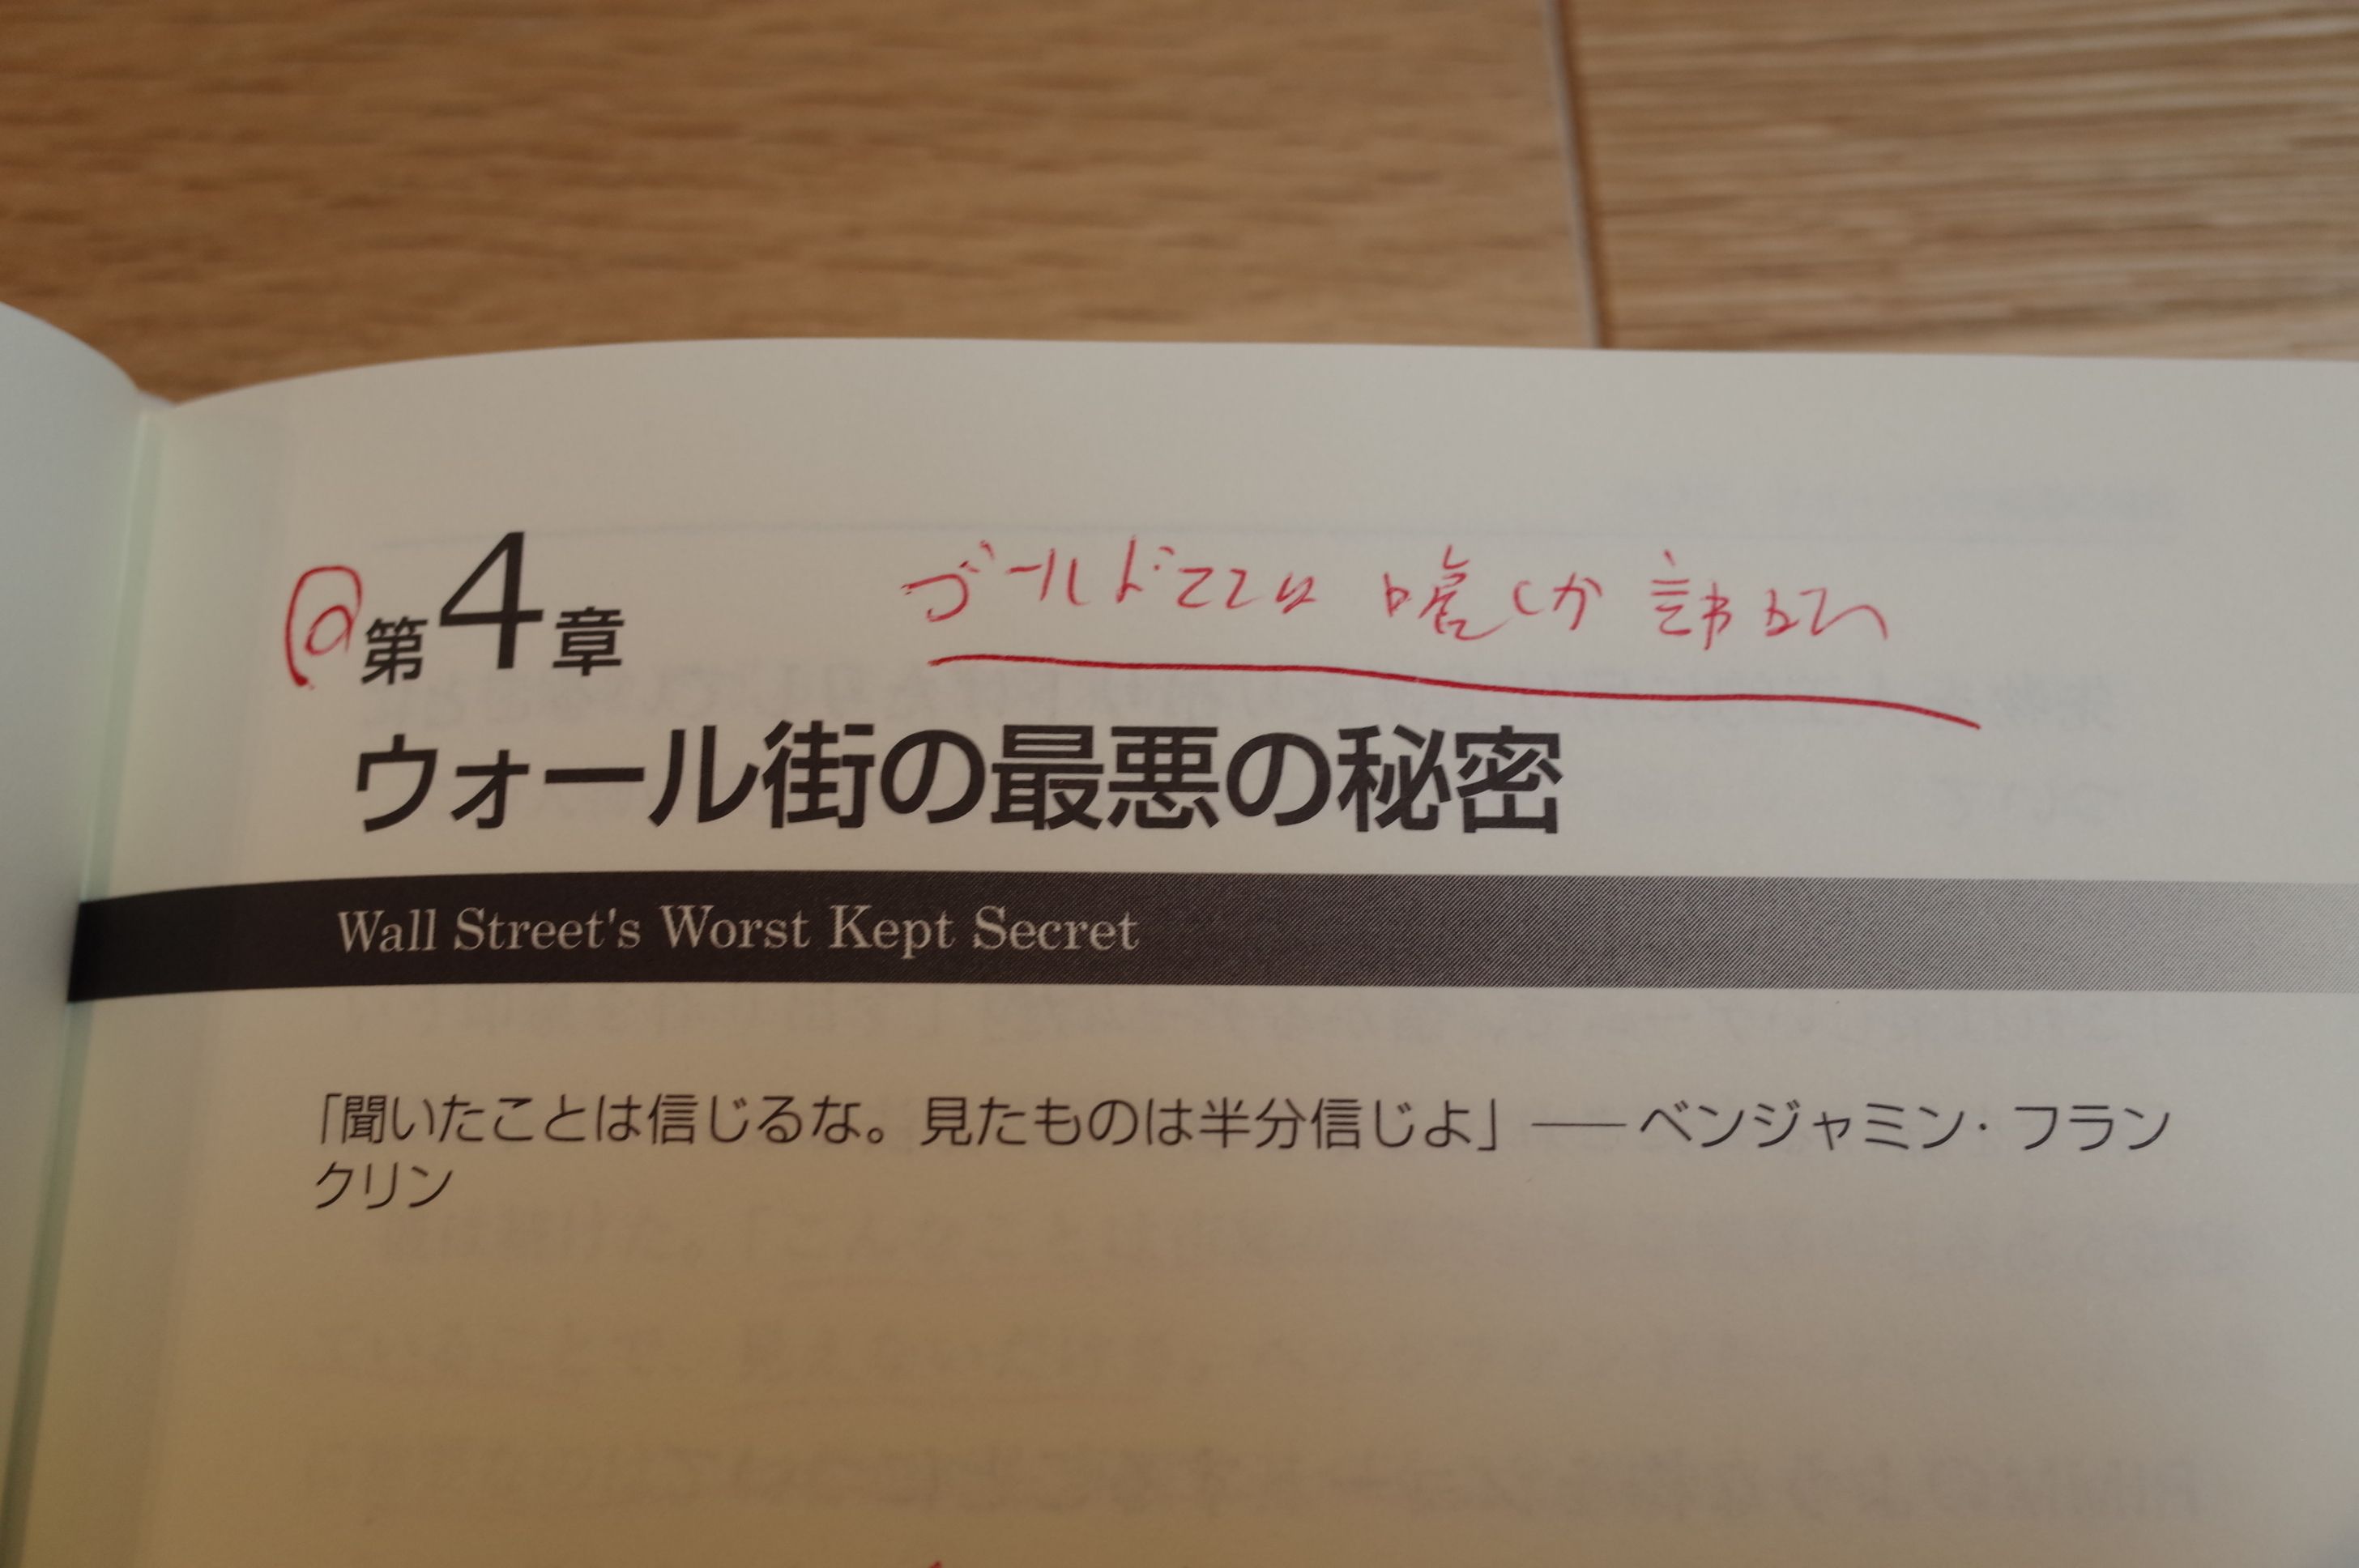 ゴールドマンは 嘘しか
第4章
ウォール街の最悪の秘密
Wall Street's Worst Kept Secret
「聞いたことは信じるな。見たものは半分信じよ」――ベンジャミン・フラン
クリン